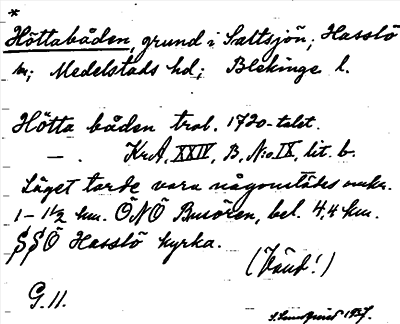 *
Höttabåden, grund i Saltsjön; Hasslö
sn; Medelstads hd; Blekinge l.
Hötta båden trol. 1720-talet.
— . KrA, XXIV, B, N:o IX, lit. b.
Läget torde vara någonstädes omkr.
1 – 1½ km. ÖNÖ Busören, bel. 4,4 km.
SSÖ Hasslö kyrka.
(Vänd!)
G. 11.
S. Lundqvist 1937.